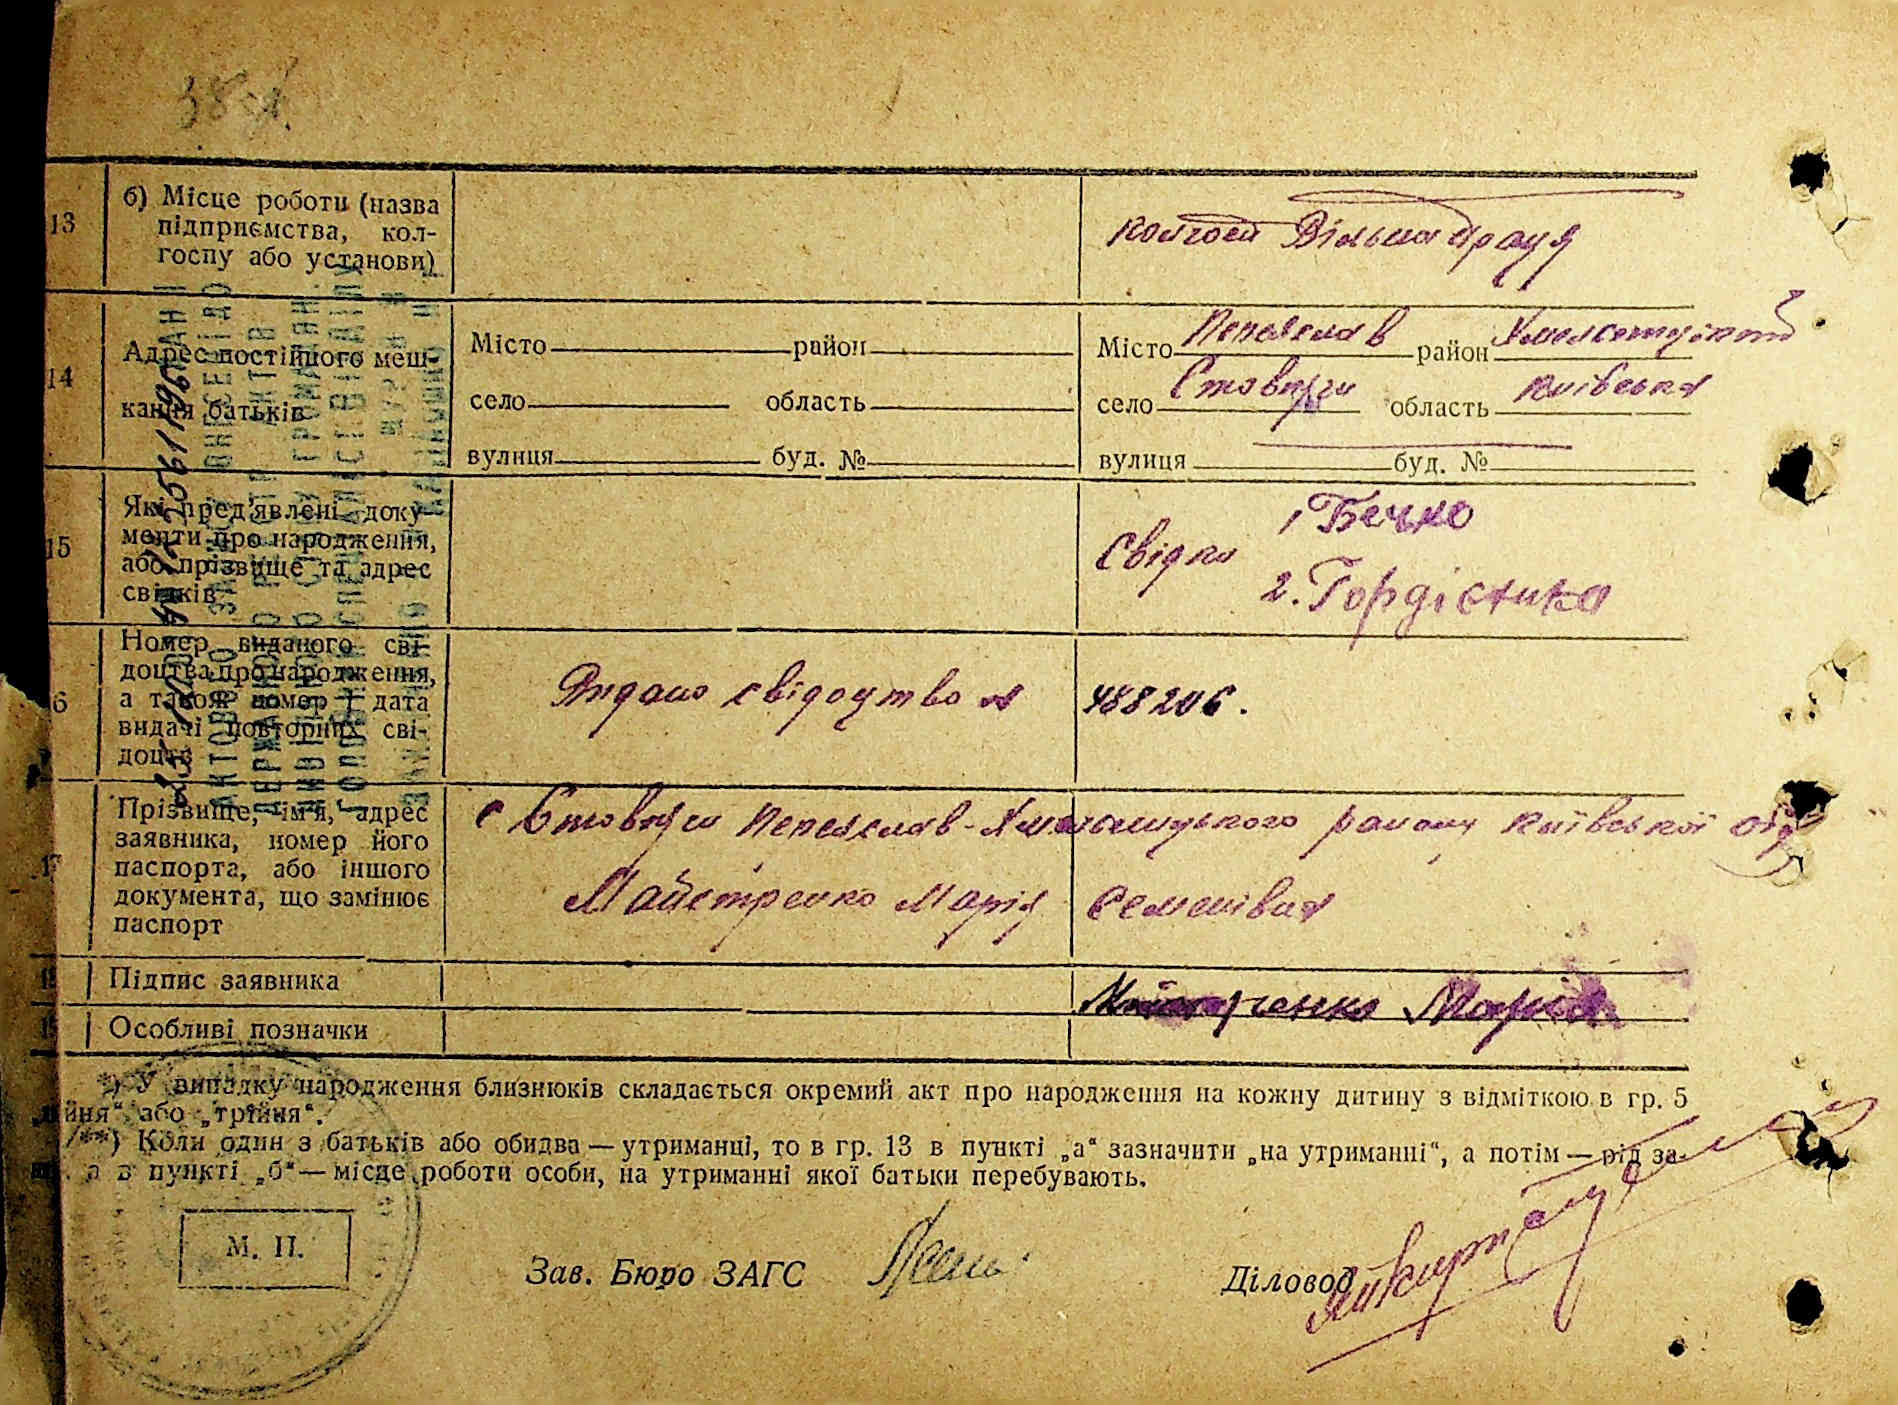 13
б) Місце роботи (назва
підприємства, кол-
госпу або установи)
колгосп Вільна праця
14
Адрес постійного меш-
кання батьків
Місто район
село область
вулиця буд. №
Місто Переяслав район Хмельницький
село Стовпяги область Київська
вулиця буд. №
15
Які пред'явлені доку-
менти про народження,
або прізвище та адрес
свідків
Свідки 1 Бечко
2.
6
Номер виданого сві-
доцтва про народження,
а також номер і дата
видачі повторних сві-
доцтв
Видано свідоцтво 488206.
17
Прізвище, ім'я, адрес
заявника, номер його
паспорта, або іншого
документа, що замінює
паспорт
с Стовпяги Переяслав-Хмельницького району Київської обл
Майстренко Марія Семенівна
Підпис заявника
Майстренко Марія
Особливі позначки
*) У випадку народження близнюків складається окремий акт про народження на кожну дитину з відміткою в гр. 5
або „трійня“.
**) Коли один з батьків або обидва — утриманці, то в гр. 13 в пункті „а“ зазначити „на утриманні“, а потім — рід за-
а в пункті „б“ — місце роботи особи, на утриманні якої батьки перебувають.
М. П.
Зав. Бюро ЗАГС
Діловод